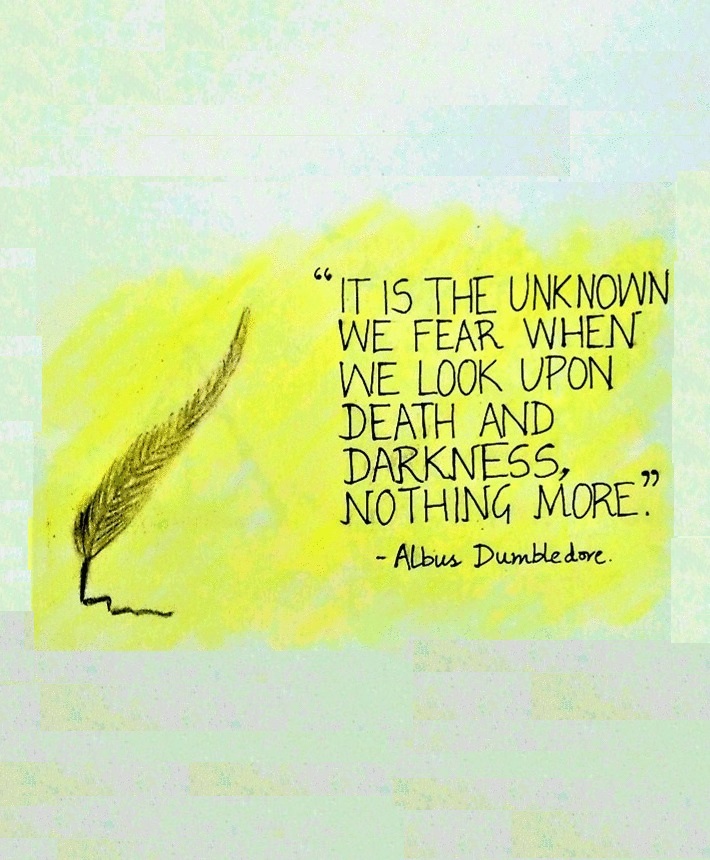 “IT IS THE UNKNOWN
WE FEAR WHEN
WE LOOK UPON
DEATH AND
DARKNESS,
NOTHING MORE.”
- Albus Dumbledore.